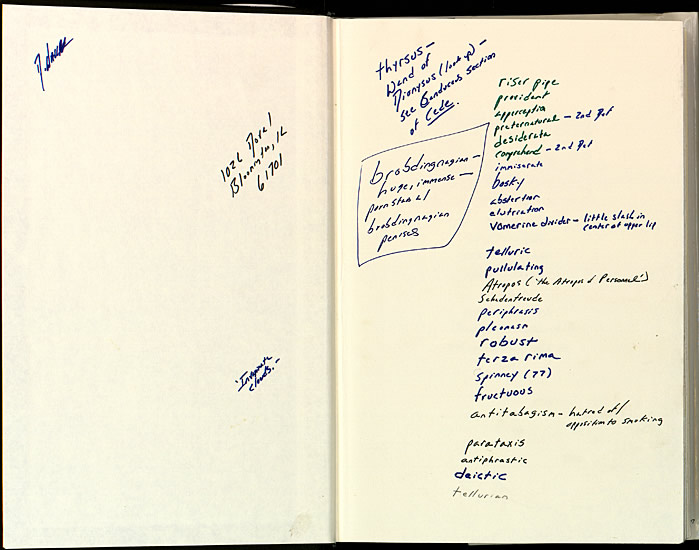 1026 Doral
Bloomington, IL
61701
thyrsus —
Wand of
Dionysus (look up) —
see Ganducus section
of Cede.
brobdingnagian —
huge, immense —
porn star al
brobdingnagian
penises
riser pipe
provident
apperceptia
preternatural — 2nd Def
desiderata
comprehend — 2nd Def
immiserate
bosky
abstertion
elutriation
Vomerine divider — little slash in
center of upper lip
telluric
pullulating
Atropos ("the Atropos of Personnel")
Schadenfreude
periphrasis
pleonasm
robust
terza rima
spinney (77)
fructuous
antitabagism — hatred of/
opposition to smoking
parataxis
antiphrastic
deictic
tellurian
clouds."